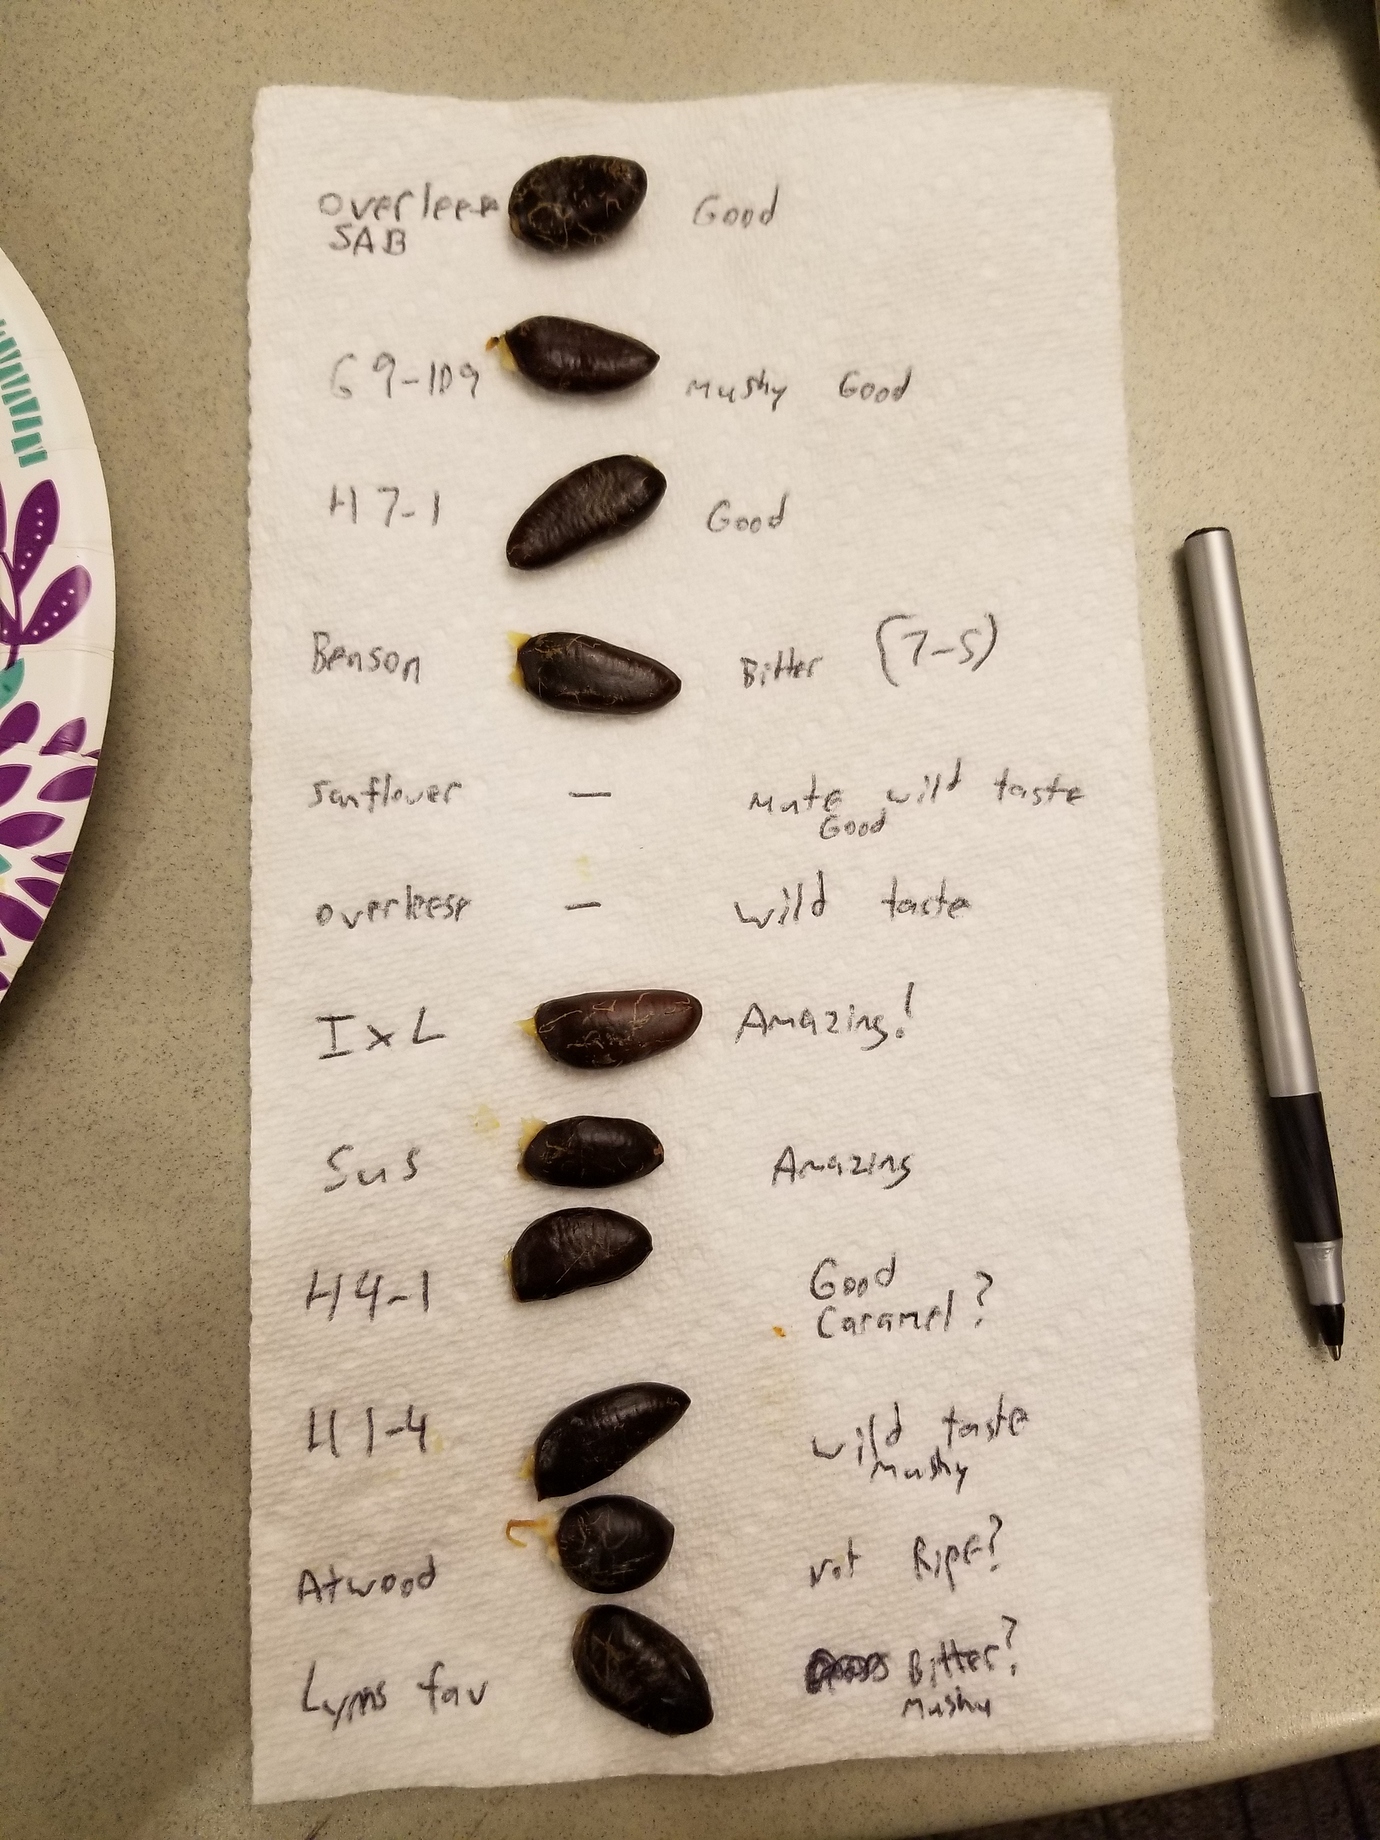 overleese Good
SAB
G9-109 Mushy Good
H7-1 Good
Benson Bitter (7-5)
Sunflower — Mute wild taste
Good
overleese — wild taste
IxL Amazing!
Sus Amazing
H4-1 Good
Caramel?
H1-4 wild taste
Mushy
Atwood not Ripe?
Lyns fav Bitter?
Mushy